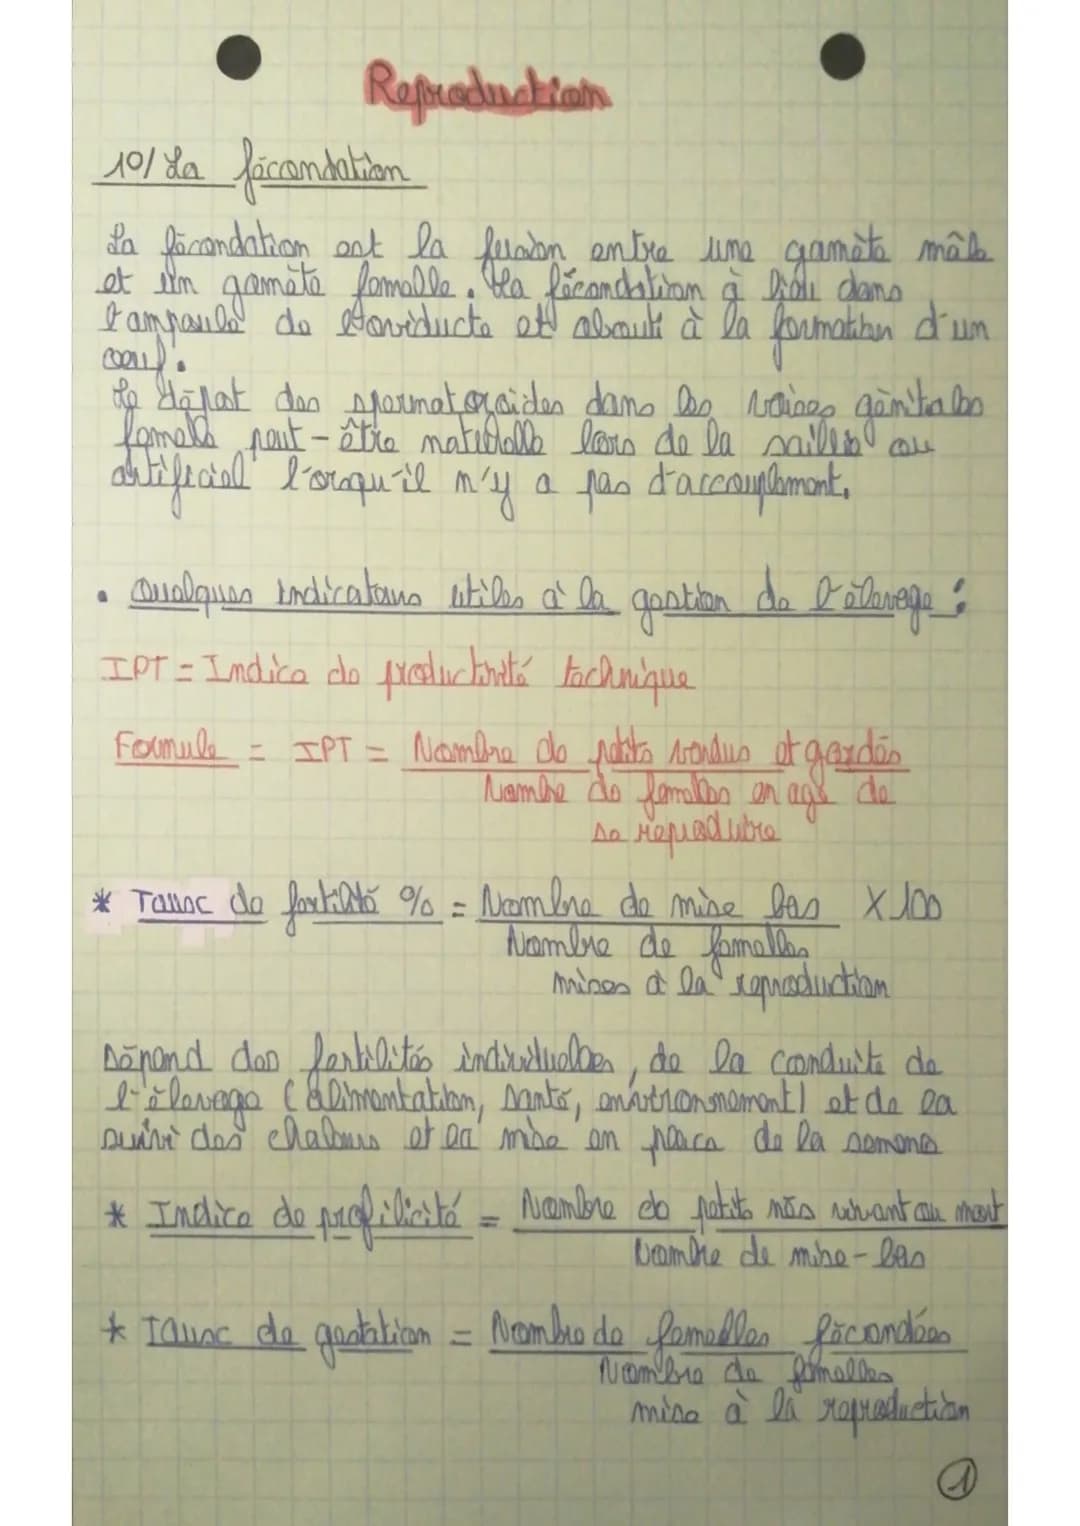 Reproduction
10/ La fécondation
La fécondation est la fusion entre une gamète mâle
et un gamète femelle. La fécondation à lieu dans
l'ampoule de l'oviducte et abouti à la formation d'un
oeuf.
Le dépot des spermatozoïdes dans les voies génitales
femelle peut-être naturelle lors de la saillie ou
artificiel l'orsqu'il n'y a pas d'accouplement.
• Quelques indicateurs utiles à la gestion de l'élevage :
IPT = Indice de productivité technique
Formule = IPT = Nombre de petits vendus et gardés
Nombre de femelles en age de
se reproduire
* Taux de fertilité % = Nombre de mise bas X 100
Nombre de femelles
mises à la reproduction
Dépend des fertilités individuelles, de la conduite de
l'élevage (alimentation, santé, environnement) et de la
suivi des chaleurs et la mise en place de la semence
* Indice de profilicité = Nombre de petits nés vivant ou mort
Nombre de mise-bas
* Taux de gestation = Nombre de femelles fécondées
Nombre de femelles
mise à la reproduction
1